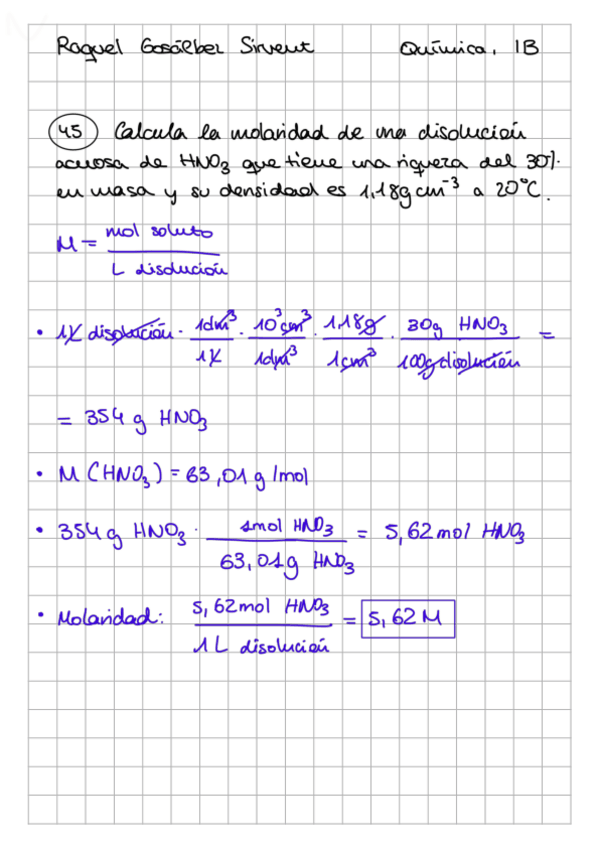 Raquel Gosálbez Sirvent Química, 1B
45 Calcula la molaridad de una disolución
acuosa de HNO₃ que tiene una riqueza del 30%
en masa y su densidad es 1,18g cm⁻³ a 20°C.
M = mol soluto / L disolución
• 1L disolución · 1dm³/1L · 10³cm³/1dm³ · 1,18g/1cm³ · 30g HNO₃/100g disolución =
= 354 g HNO₃
• M(HNO₃) = 63,01 g/mol
• 354g HNO₃ · 1mol HNO₃/63,01g HNO₃ = 5,62mol HNO₃
• Molaridad: 5,62mol HNO₃/1L disolución = 5,62 M